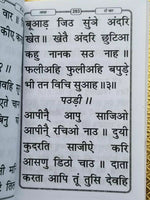 बुआड़ जिउ सुंञे अंदरि
खेत ॥ खेतै अंदरि छुटिआ
कहु नानक सउ नाह ॥
फलीअहि फुलीअहि बपुड़े
भी तन विचि सुआह ॥३॥
पउड़ी ॥
आपीनै॑ आपु साजिओ
आपीनै॑ रचिओ नाउ ॥ दुयी
कुदरति साजीऐ करि
आसणु डिठो चाउ ॥ दाता
करता आपि तूं तुसि देवहि